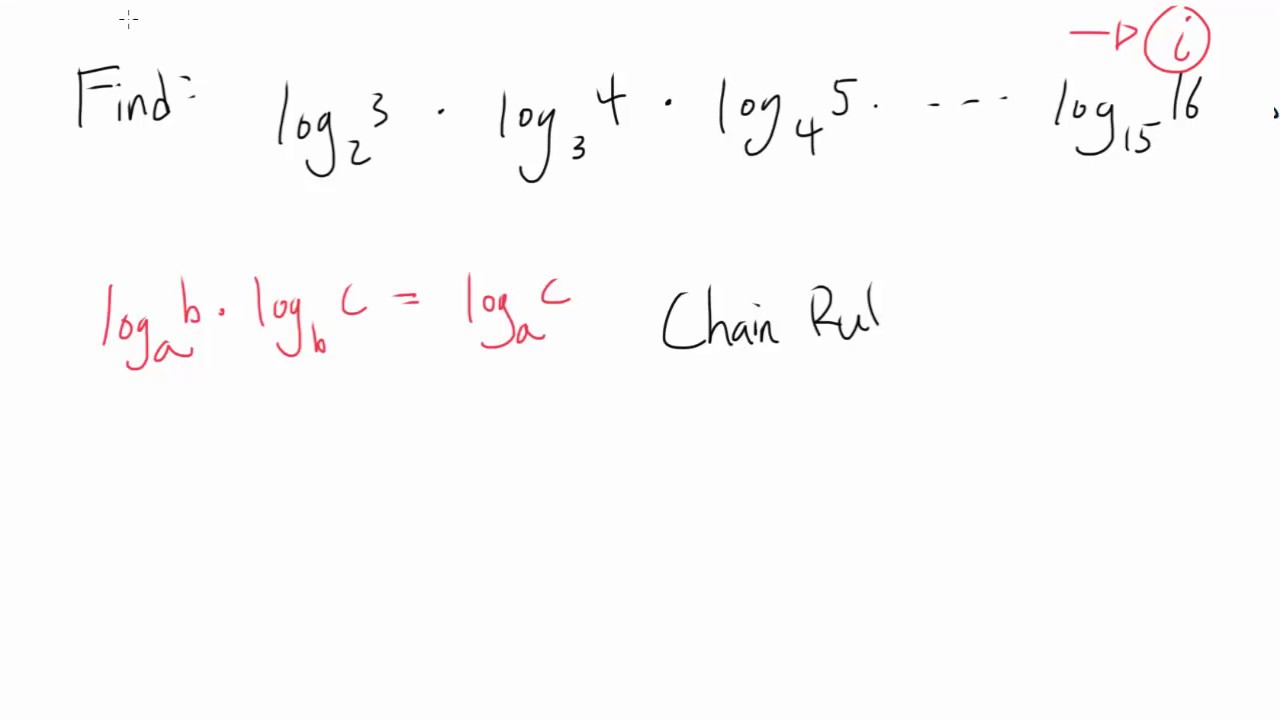 → i
Find: log₂ 3 · log₃ 4 · log₄ 5 · ---- log₁₅ 16
logₐ b · log_b c = logₐ c Chain Rul